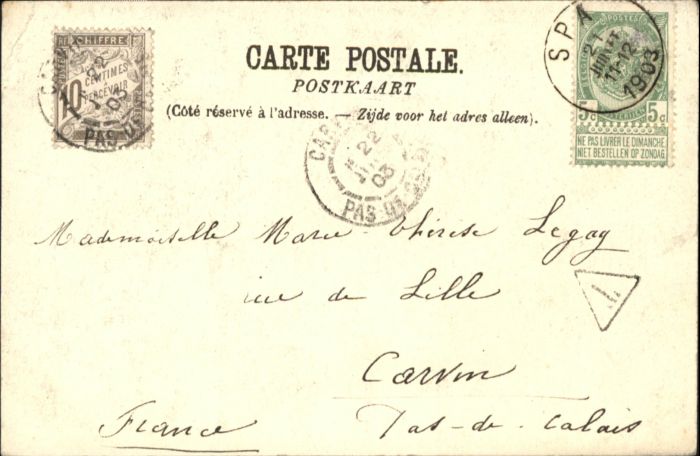 CHIFFRE
10 CENTIMES
À PERCEVOIR
22
03
PAS DE
CARTE POSTALE.
POSTKAART
(Côté réservé à l'adresse. — Zijde voor het adres alleen).
SPA
21
JUILLET
11-12
1903
POSTES
5c 5c
NE PAS LIVRER LE DIMANCHE
NIET BESTELLEN OP ZONDAG
22
03
PAS DE
Mademoiselle Marie-Thérèse Legay
rue de Lille
T
Carvin
France
Pas-de-Calais